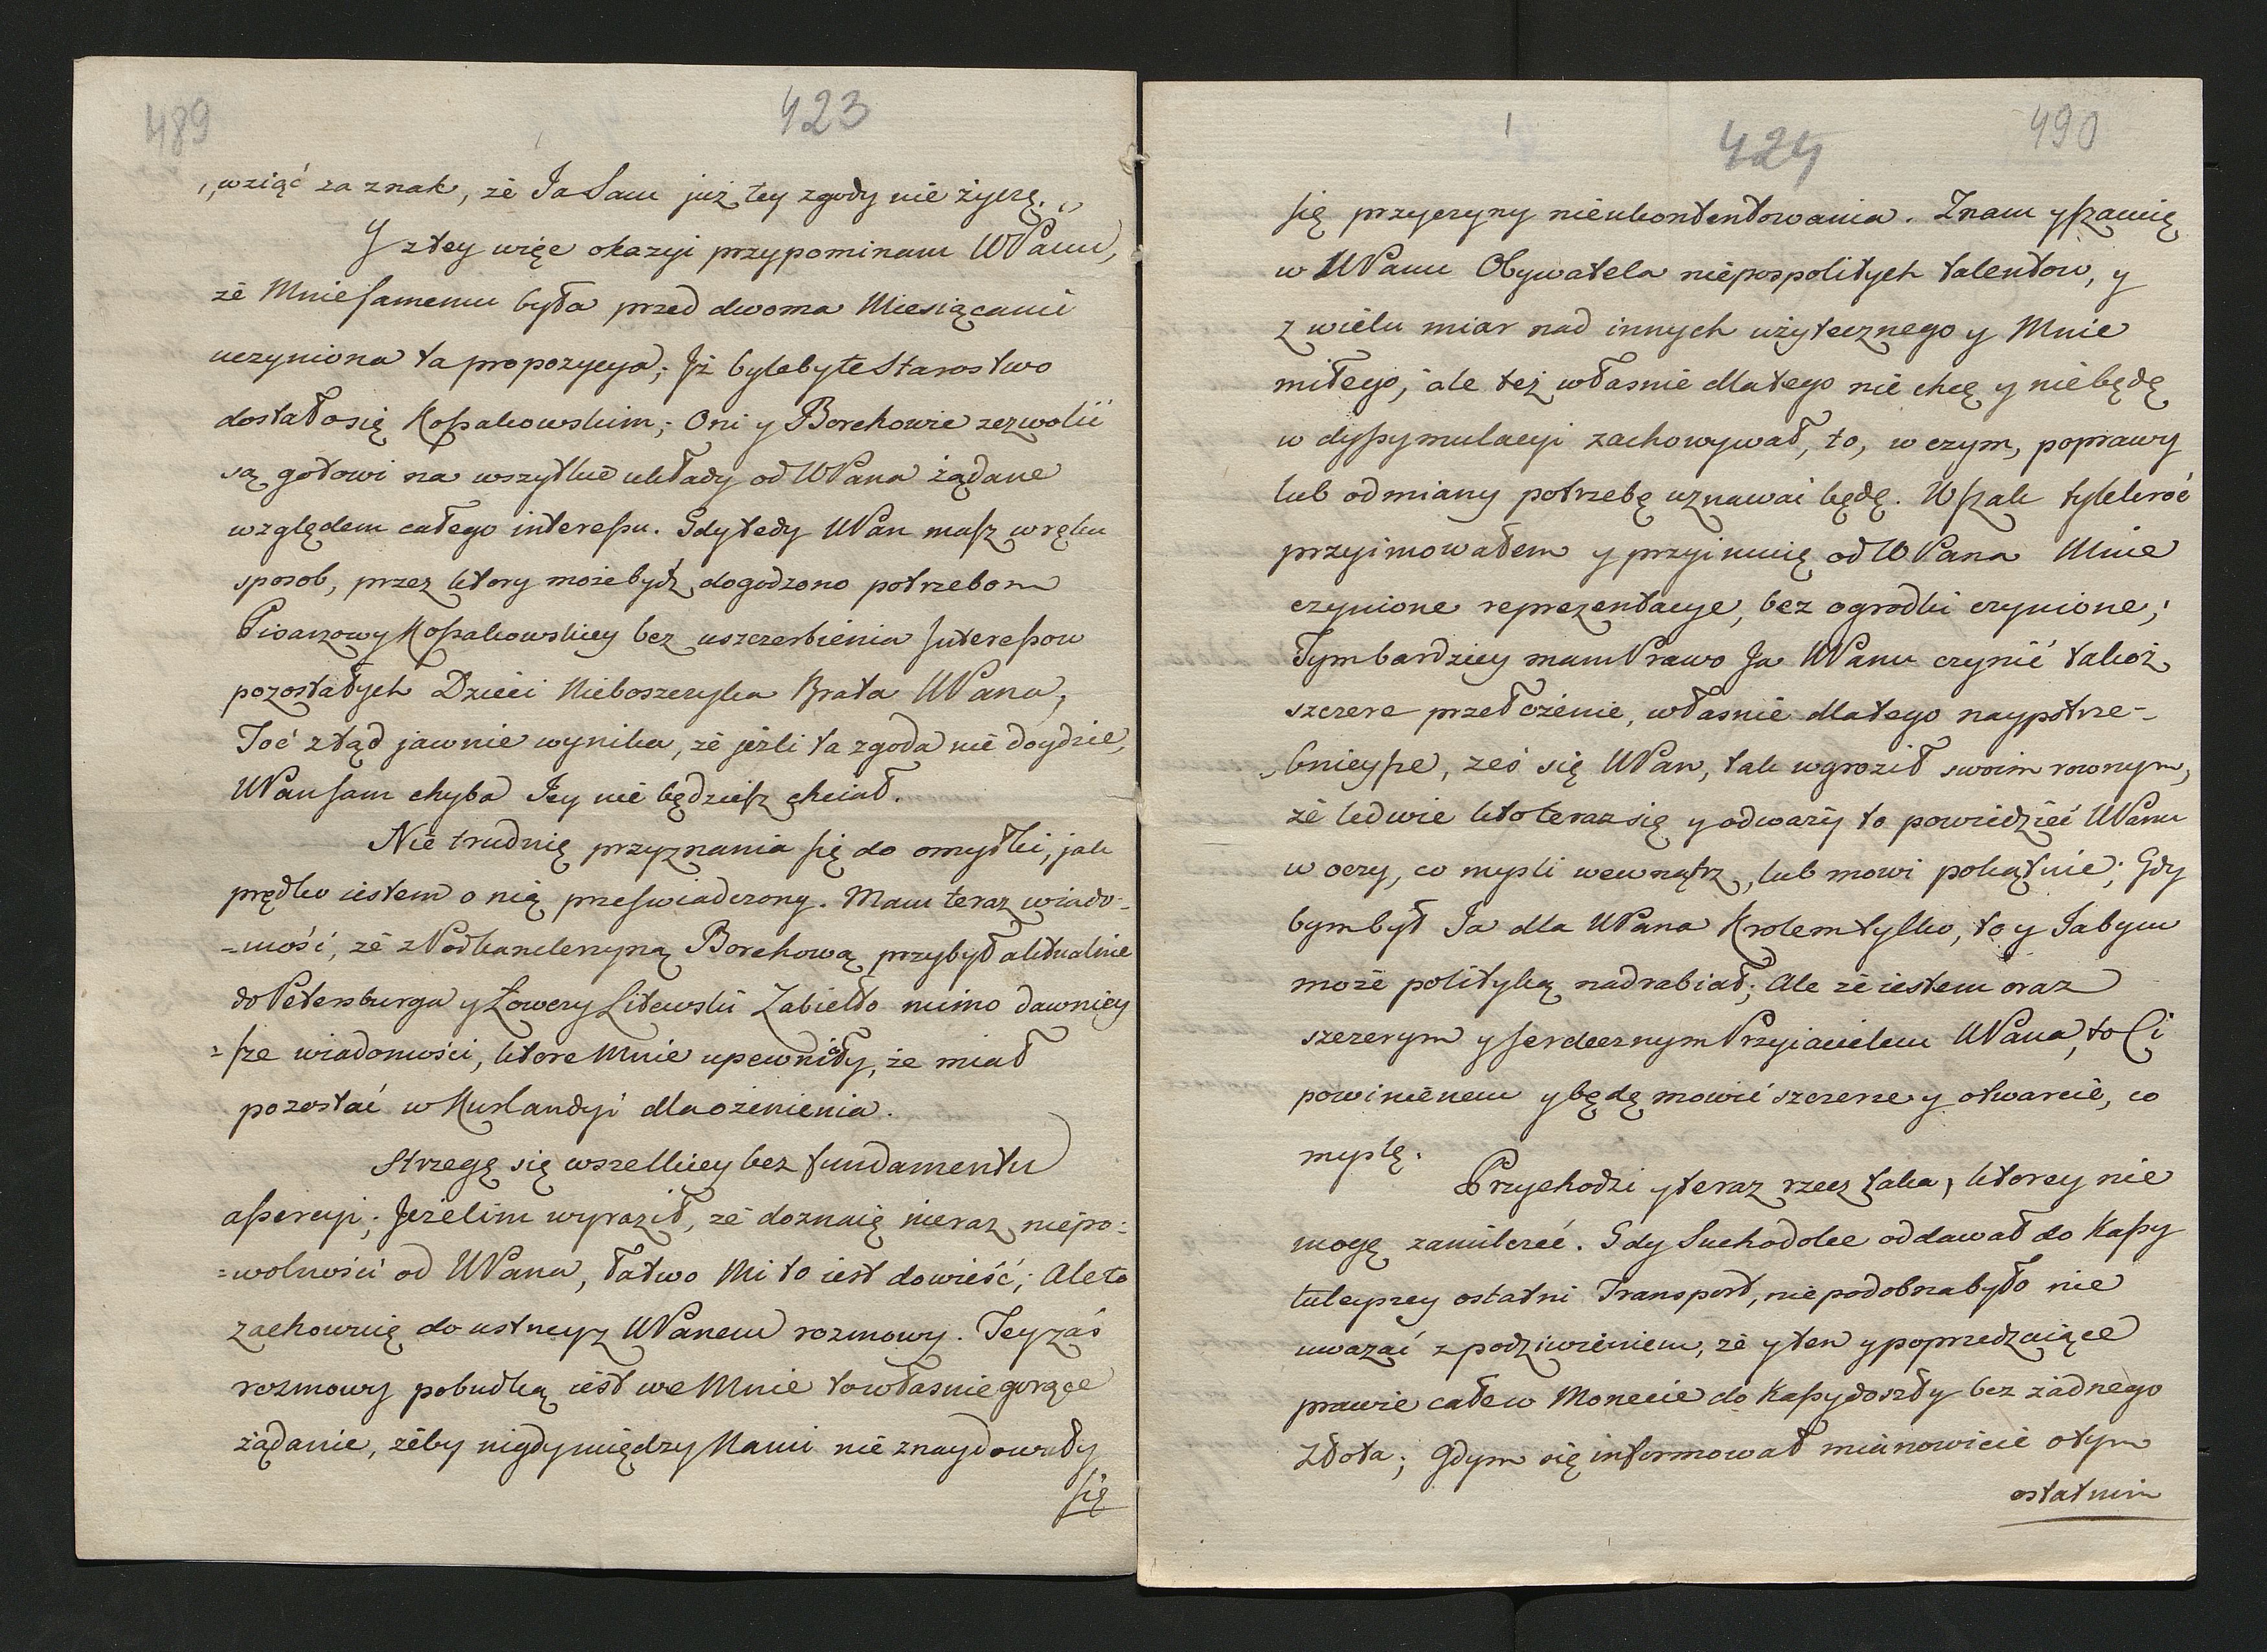 489
423
„wziąć za znak, że Ja Sam już tey zgody nie życzę.„
Y z tey więc okazyi przypominam WPanu,
że Mnie samemu była przed dwoma Miesiącami
uczyniona ta propozycya; Jż byleby te Starostwo
dostało się Kossakowskim; Oni y Borchowie zezwolić
są gotowi na wszytkie układy od WPana żądane
względem całego interessu. Gdy tedy WPan masz w ręku
sposob, przez ktory może bydź dogodzono potrzebom
Pisarzowy Kossakowskiey bez uszczerbienia Interessow
pozostałych Dzieci Nieboszczyka Brata WPana,
Toć ztąd jawnie wynika, że jeżli ta zgoda nie doydzie,
WPan sam chyba Jey nie będziesz chciał.
Nie trudnię przyznania się do omyłki, jak
prędko iestem o nią przeswiadczony. Mam teraz wiado-
-mość, że z Podkanclerzyną Borchową przybył aktualnie
do Petersburga y Łowczy Litewski Zabiełło mimo dawniey
-sze wiadomości, ktore Mnie upewniały, że miał
pozostać w Kurlandyi dla ożenienia.
Strzegę się wszelkiey bez fundamentu
assercyi; Jeżelim wyraził, że doznaię nieraz niepo-
-wolności od WPana, łatwo Mi to iest dowieść; Ale to
zachownię do ustney z WPanem rozmowy. Tey zaś
rozmowy pobudką iest we Mnie to własnie gorące
żądanie, żeby nigdy między Nami nie znaydowały
się
424
490
się przyczyny nieukontentowania. Znam y szacuię
w WPanu Obywatela niepospolitych talentow, y
z wielu miar nad innych użytecznego y Mnie
miłego, ale też własnie dlatego nie chcę y nie będę
w dyssymulacyi zachowywał, to, w czym, poprawy
lub odmiany potrzebę uznawać będę. Wszak tylekroć
przyimowałem y przyimuię od WPana Mnie
czynione reprezentacye, bez ogrodki czynione;
Tym bardziey mam Prawo Ja WPanu czynić takoż
szczere przełożenie, własnie dlatego naypotrze-
-bnieysze, żeś się WPan, tak wgroził swoim rownym,
że ledwie kto teraz się y odważy to powiedzieć WPanu
w oczy, co mysli wewnątrz, lub mowi pokątnie; Gdy
bym był Ja dla WPana Krolem tylko, to y Jabym
może polityką nadrabiał; Ale że iestem oraz
szczerym y serdecznym Przyiacielem WPana, to Ci
powinienem y będę mowić szczerze y otwarcie, co
myslę.
Przychodzi y teraz rzecz taka, ktorey nie
mogę zamilczeć. Gdy Suchodolec oddawał do Kassy
tuteyszey ostatni Transport, niepodobna było nie
uwazać z podziwieniem, że y ten y poprzedzaiące
prawie całe w Monecie do Kassy doszły bez żadnego
Złota; Gdym się informował mianowicie o tym
ostatnim